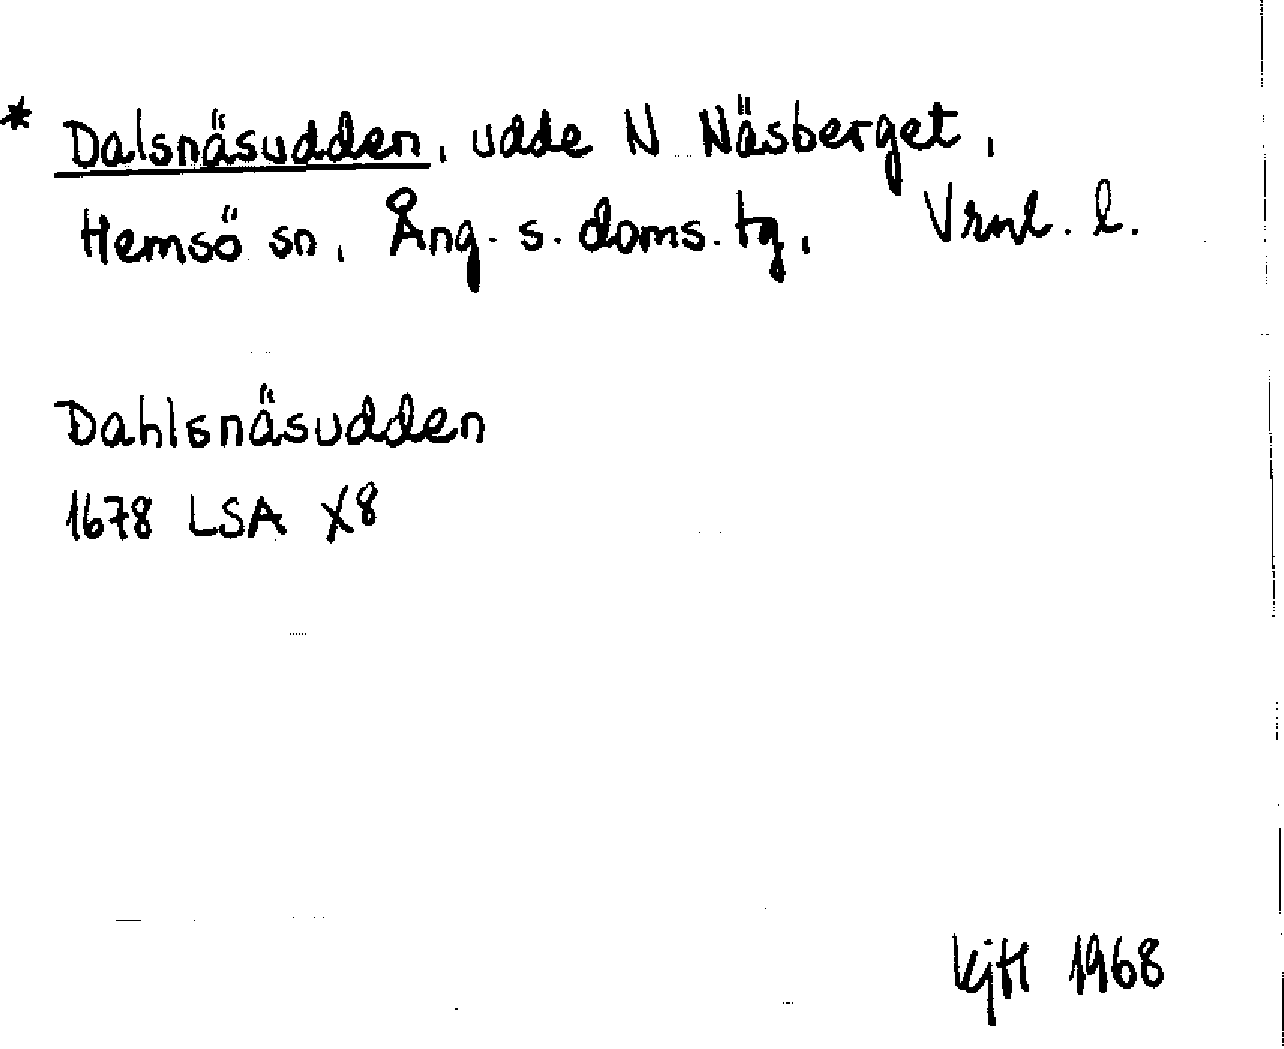 * Dalsnäsudden, udde N Näsberget,
Hemsö sn, Ång. s. doms. tg, Vrnl. l.
Dahlsnäsudden
1678 LSA X8
KjH 1968